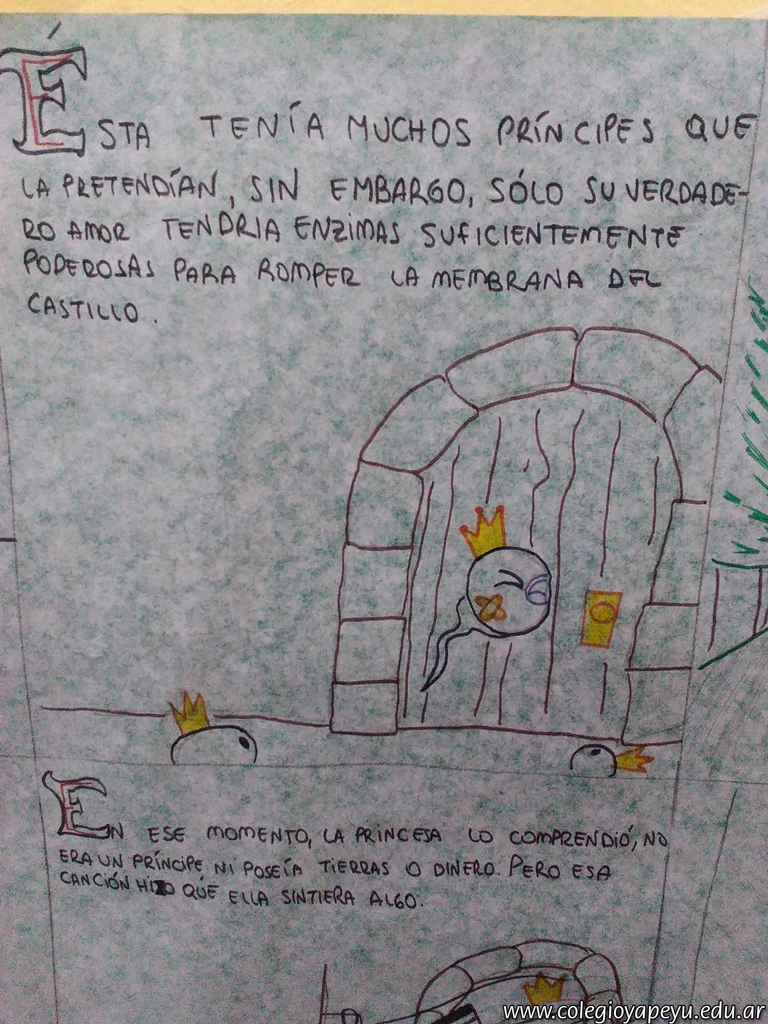 ÉSTA TENÍA MUCHOS PRÍNCIPES QUE
LA PRETENDÍAN, SIN EMBARGO, SÓLO SU VERDADE-
RO AMOR TENDRIA ENZIMAS SUFICIENTEMENTE
PODEROSAS PARA ROMPER LA MEMBRANA DEL
CASTILLO.
EN ESE MOMENTO, LA PRINCESA LO COMPRENDIÓ, NO
ERA UN PRÍNCIPE, NI POSEÍA TIERRAS O DINERO. PERO ESA
CANCIÓN HIZO QUE ELLA SINTIERA ALGO.
www.colegioyapeyu.edu.ar